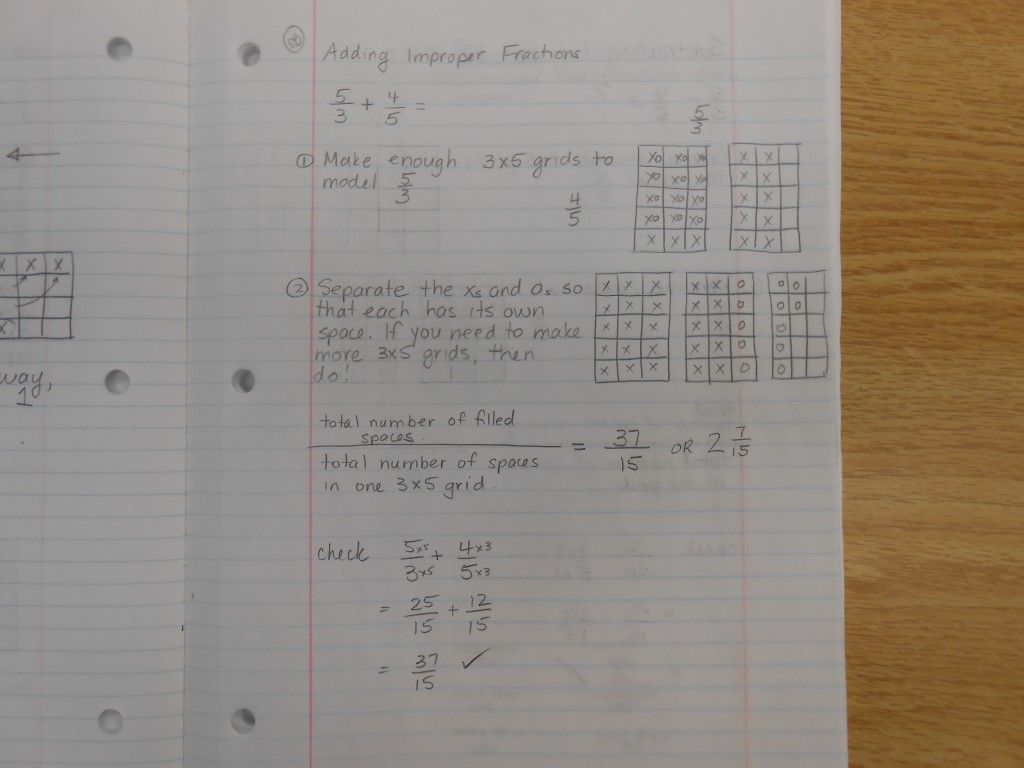 Adding Improper Fractions
5/3 + 4/5 =
① Make enough 3x5 grids to
model 5/3
5/3
4/5
xo xo xo x x
xo xo xo x x
xo xo xo x x
xo xo xo x x
x x x x x
② Separate the xs and Os so
that each has its own
space. If you need to make
more 3x5 grids, then
do!
x x x x x o o o
x x x x x o o o
x x x x x o o
x x x x x o o
x x x x x o o
total number of filled
spaces
total number of spaces
in one 3x5 grid
= 37/15 OR 2 7/15
check 5x5/3x5 + 4x3/5x3
= 25/15 + 12/15
= 37/15 ✓
x x x
x
way,
1